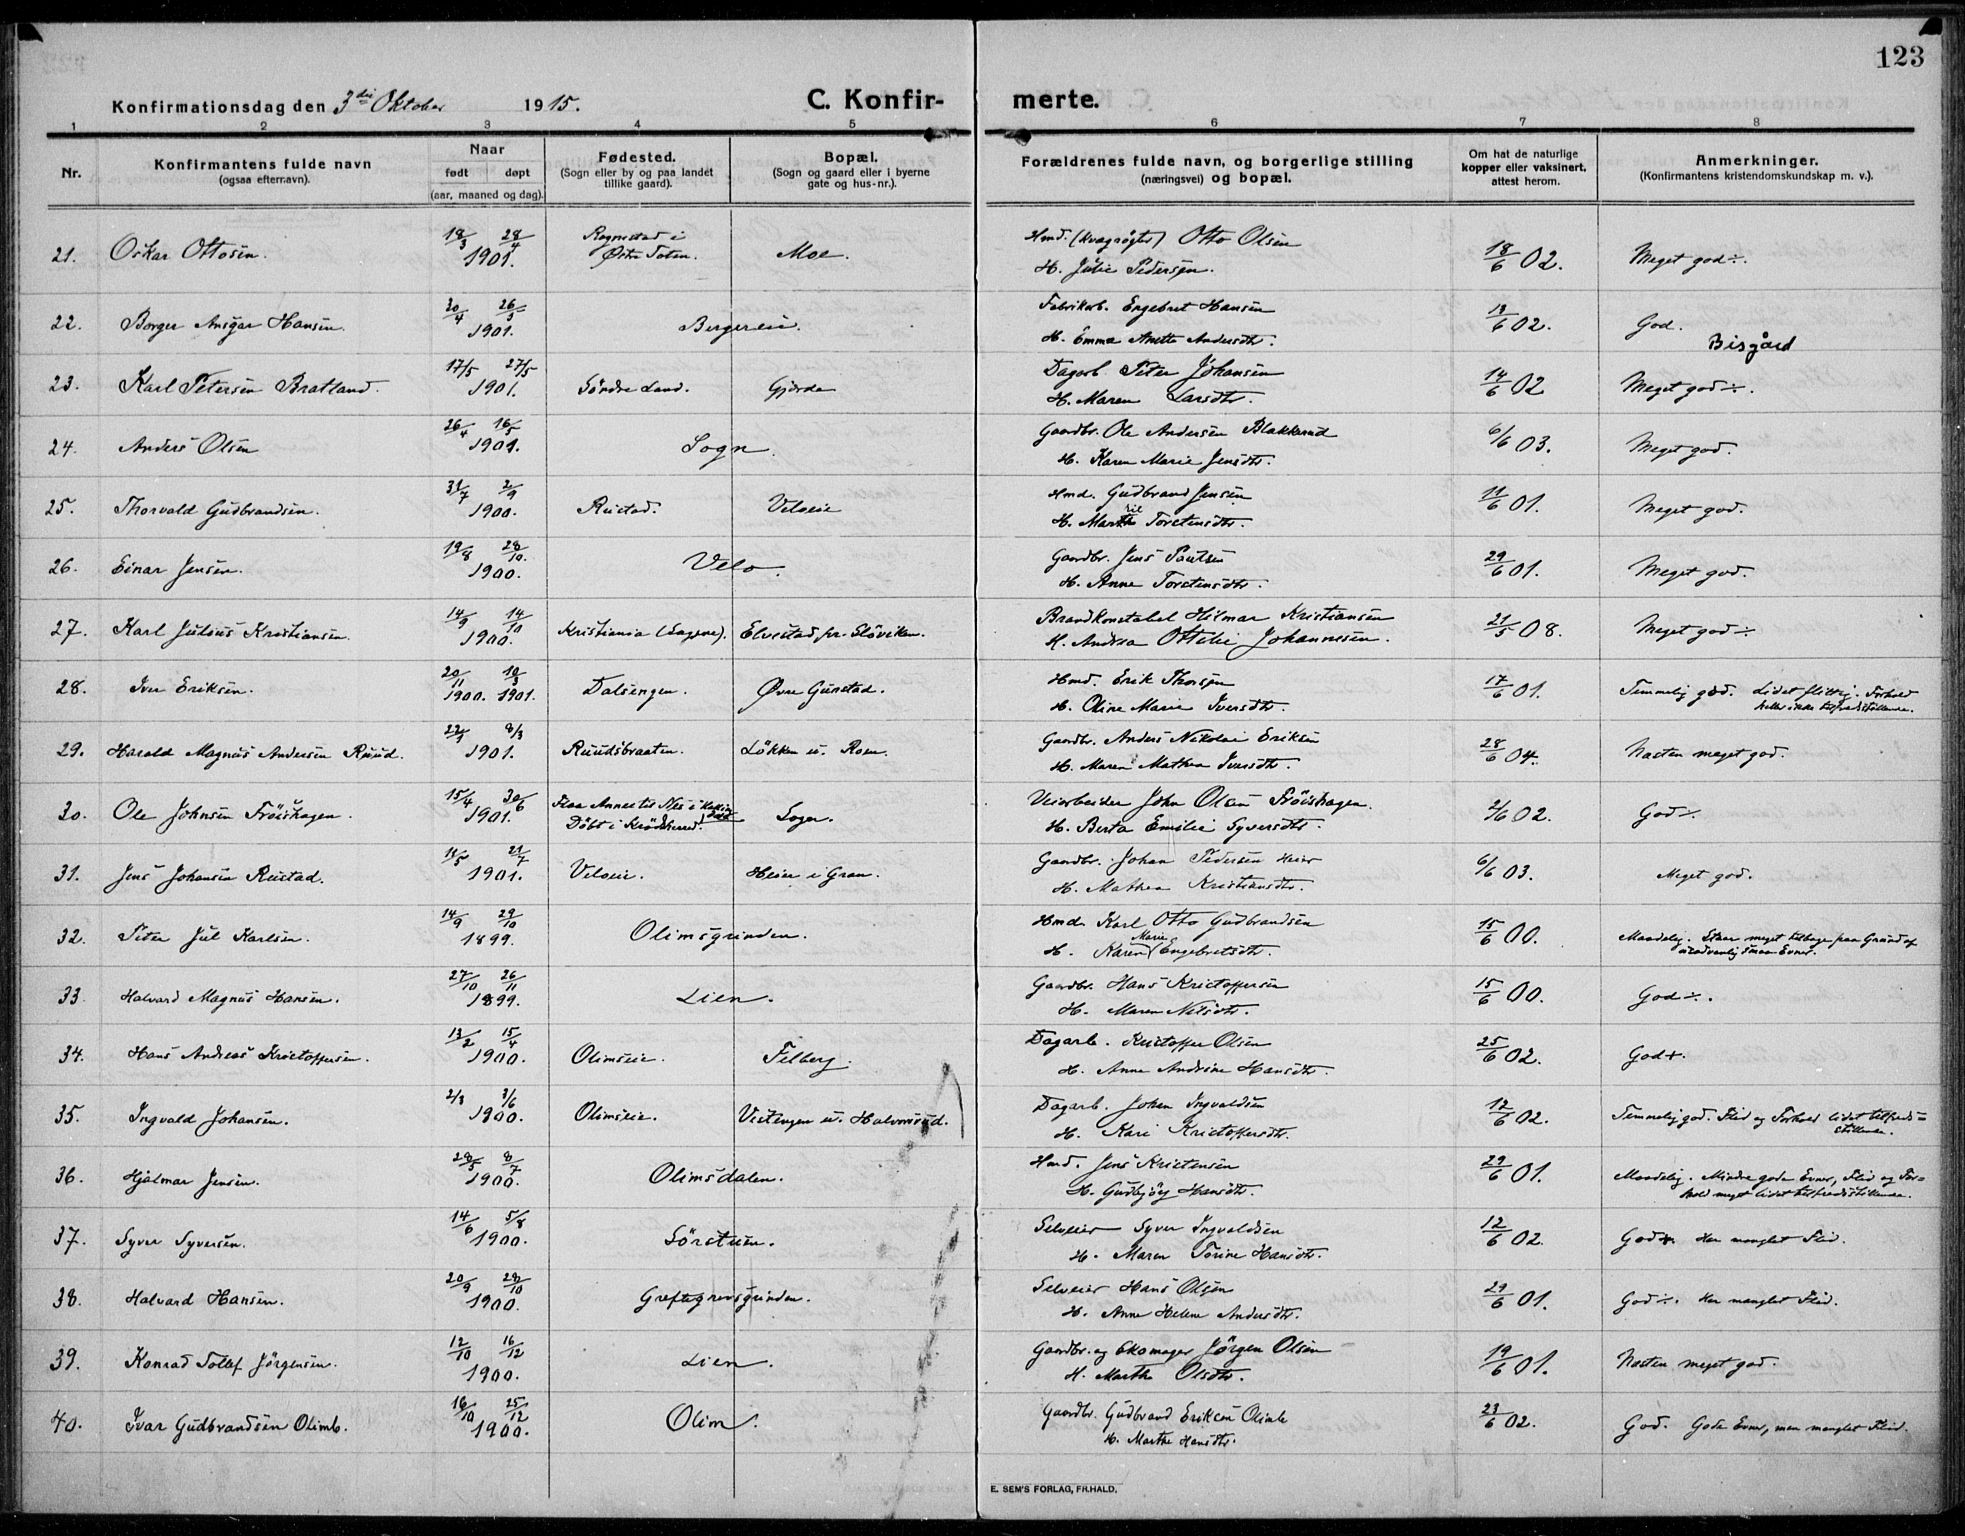 123
Konfirmationsdag den 3die Oktober 1915.
C. Konfir-
merte.
1 2 3 4 5 6 7 8
Nr.
Konfirmantens fulde navn
(ogsaa efternavn).
Naar
født døpt
(aar, maaned og dag).
Fødested.
(Sogn eller by og paa landet
tillike gaard).
Bopæl.
(Sogn og gaard eller i byerne
gate og hus-nr.).
Forældrenes fulde navn, og borgerlige stilling
(næringsvei) og bopæl.
Om hat de naturlige
kopper eller vaksinert,
attest herom.
Anmerkninger.
(Konfirmantens kristendomskundskap m. v.).
21. Oskar Ottosen. 18/3 28/4 1901. Rognestad i Østre Toten. Moe. Hmd. (Kvægrøgter) Otto Olsen
H. Julie Pedersen. 18/6 02. Meget god ÷.
22. Borger Ansgar Hansen. 20/4 26/5 1901. Bergereie. Fabrikarb. Engebret Hansen
H. Emma Anette Andersdtr. 13/6 02. God.
Bisgård
23. Karl Petersen Bratland. 17/5 27/5 1901. Söndre Land. Gjerde Dagarb. Peter Johansen
H. Maren Larsdtr. 14/6 02 Meget god ÷.
24. Anders Olsen 26/4 16/5 1901. Sogn. Gaardbr. Ole Andersen Blakkerud
H. Karen Marie Jensdtr. 6/6 03. Meget god.
25. Thorvald Gudbrandsen. 31/7 2/9 1900. Rustad. Veloeie Hmd. Gudbrand Jensen
H. Torstensdtr. 11/6 01. Meget god.
26. Einar Jensen. 19/8 28/10. 1900. Velo. Gaardbr. Jens Paulsen
H. Anne Torstensdtr. 29/6 01. Meget god.
27. Karl Julius Kristiansen. 14/9 14/10 1900. Kristiania (Sagene). Elvestad pr. Röviken. Brandkonstabel Hilmar Kristiansen
H. Andrea Ottilie Johannesen. 21/5 08. Meget god ÷
28. Iver Eriksen. 20/11 1900. 10/3 1901. Dalsengen. Øvre Gunstad. Hmd. Erik Thorsen
H. Oline Marie Iversdtr. 17/6 01. Temmelig god. Lidet flittig. Forhold
heller ikke tilfredsstillende.
29. Harald Magnus Andersen Ruud. 22/1 3/3 1901. Ruudsbraaten. Løkken u. Roen. Gaardbr. Anders Nikolai Eriksen
H. Maren Mathea Iversdtr. 28/6 04. Næsten meget god.
30. Ole Johnsen Fröishagen. 15/4 30/6 1901. Flaa Annex til Nes i Hallingdal
Döbt i Krödsherred. Sogn. Veiarbeider John Olsen Fröishagen.
H. Berta Emilie Syversdtr. 2/6 02. God ÷.
31. Jens Johansen Rustad. 11/5 21/7 1901. Veloeie. Heier i Gran. Gaardbr. Johan Pedersen Heier
H. Mathea Kristiansdtr. 6/6 03. Meget god.
32. Peter Jul Karlsen. 14/9 29/10 1899. Olimsgrinden. Hmd. Karl Otto Gudbrandsen
H. Karen Marie Engebretsdtr. 15/6 00. Maadelig. Staar meget tilbage paa Grund af
usedvanlig smaa Evner.
33. Halvard Magnus Hansen. 27/10 26/11 1899. Lien. Gaardbr. Hans Kristoffersen
H. Maren Nilsdtr. 15/6 00. God ÷.
34. Hans Andreas Kristoffersen. 13/2 15/4 1900. Olimseie. Felberg. Dagarb. Kristoffer Olsen
H. Anne Andrine Hansdtr. 25/6 02. God+.
35. Ingvald Johansen. 2/3 3/6 1900. Olimseie. Vestengen u. Halvorsrud. Dagarb. Johan Ingvaldsen
H. Kari Kristoffersdtr. 12/6 02. Temmelig god. Flid og Forhold lidet tilfreds=
stillende.
36. Hjalmar Jensen. 28/5 8/7 1900. Olimsdalen. Hmd. Jens Kristensen
H. Gudbjör Hansdtr. 29/6 01. Maadelig. Mindre gode Evner, Flid og For=
hold meget lidet tilfredsstillende.
37. Syver Syversen. 14/6 5/8 1900. Sörstuen. Selveier Syver Ingvaldsen
H. Maren Torine Hansdtr. 12/6 02. God+. Har manglet Flid.
38. Halvard Hansen. 20/9 28/10 1900. Greftegrevsgrinden. Selveier Hans Olsen
H. Anne Helene Andersdtr. 29/6 01. God ÷. Har manglet Flid.
39. Konrad Tollef Jörgensen. 12/10 16/12 1900. Lien. Gaardbr. og Skomager Jörgen Olsen
H. Marthe Olsdtr. 19/6 01. Næsten meget god.
40. Ivar Gudbrandsen Olimb. 16/10 25/12 1900. Olim. Gaardbr. Gudbrand Eriksen Olimb
H. Marthe Hansdtr. 23/6 02. God. Gode Evner, men manglet Flid.
E. SEM'S FORLAG, FR.HALD.